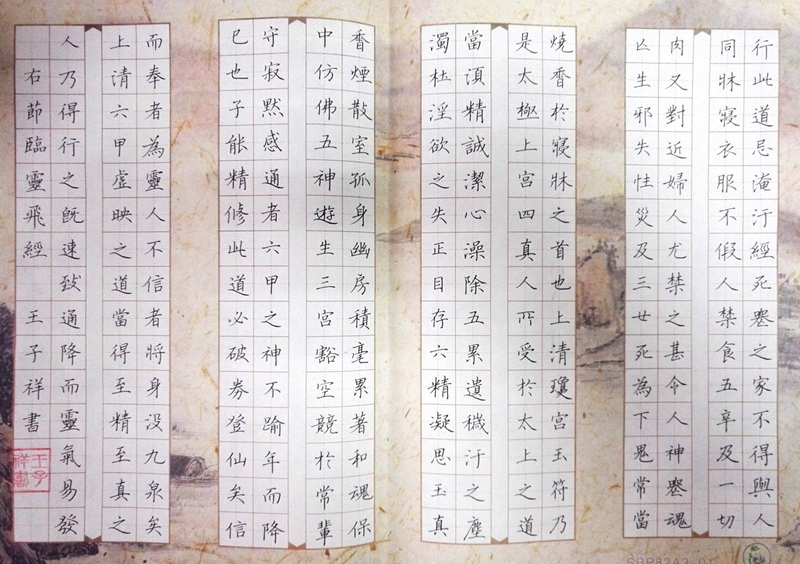 行此道忌淹汙經死喪之家不得與人
同牀寢衣服不假人禁食五辛及一切
肉又對近婦人尤禁之甚令人神喪魂
亡生邪失性災及三世死為下鬼常當
燒香於寢牀之首也上清瓊宮玉符乃
是太極上宮四真人所受於太上之道
當須精誠潔心澡除五累遺穢汙之塵
濁杜淫欲之失正目存六精凝思玉真
香煙散室孤身幽房積毫累著和魂保
中仿佛五神遊生三宮豁空競於常輩
守寂默感通者六甲之神不踰年而降
已也子能精修此道必破券登仙矣信
而奉者為靈人不信者將身没九泉矣
上清六甲虛映之道當得至精至真之
人乃得行之既速致通降而靈氣易發
右節臨靈飛經 王子祥書
王子祥書
SBP82A3-01